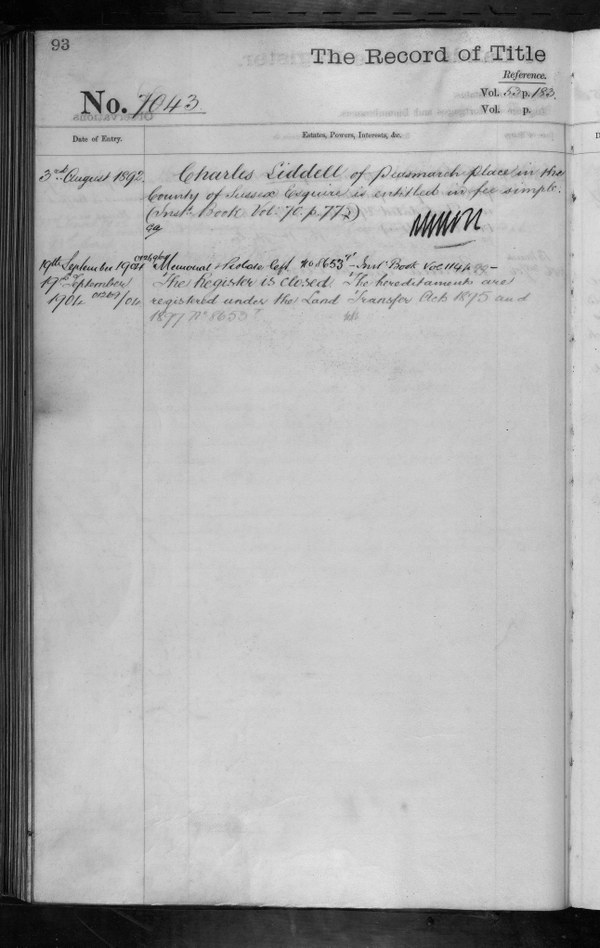 93
The Record of Title
Reference.
No. 7043
Vol. 53 p. 183.
Vol. p.
Date of Entry.
Estates, Powers, Interests, &c.
3rd August 1892
Charles Liddell of Place in the
County of Sussex Esquire is entitled in fee simple.
(Inst. Book Vol: 70. p. 77)
19th September 1904
Memorial & Probate No 8653 Inst. Book Vol 114 p.
19th September
The Register is closed The hereditaments are
1904
registered under the Land Transfer Acts 1875 and
1897 No 8653